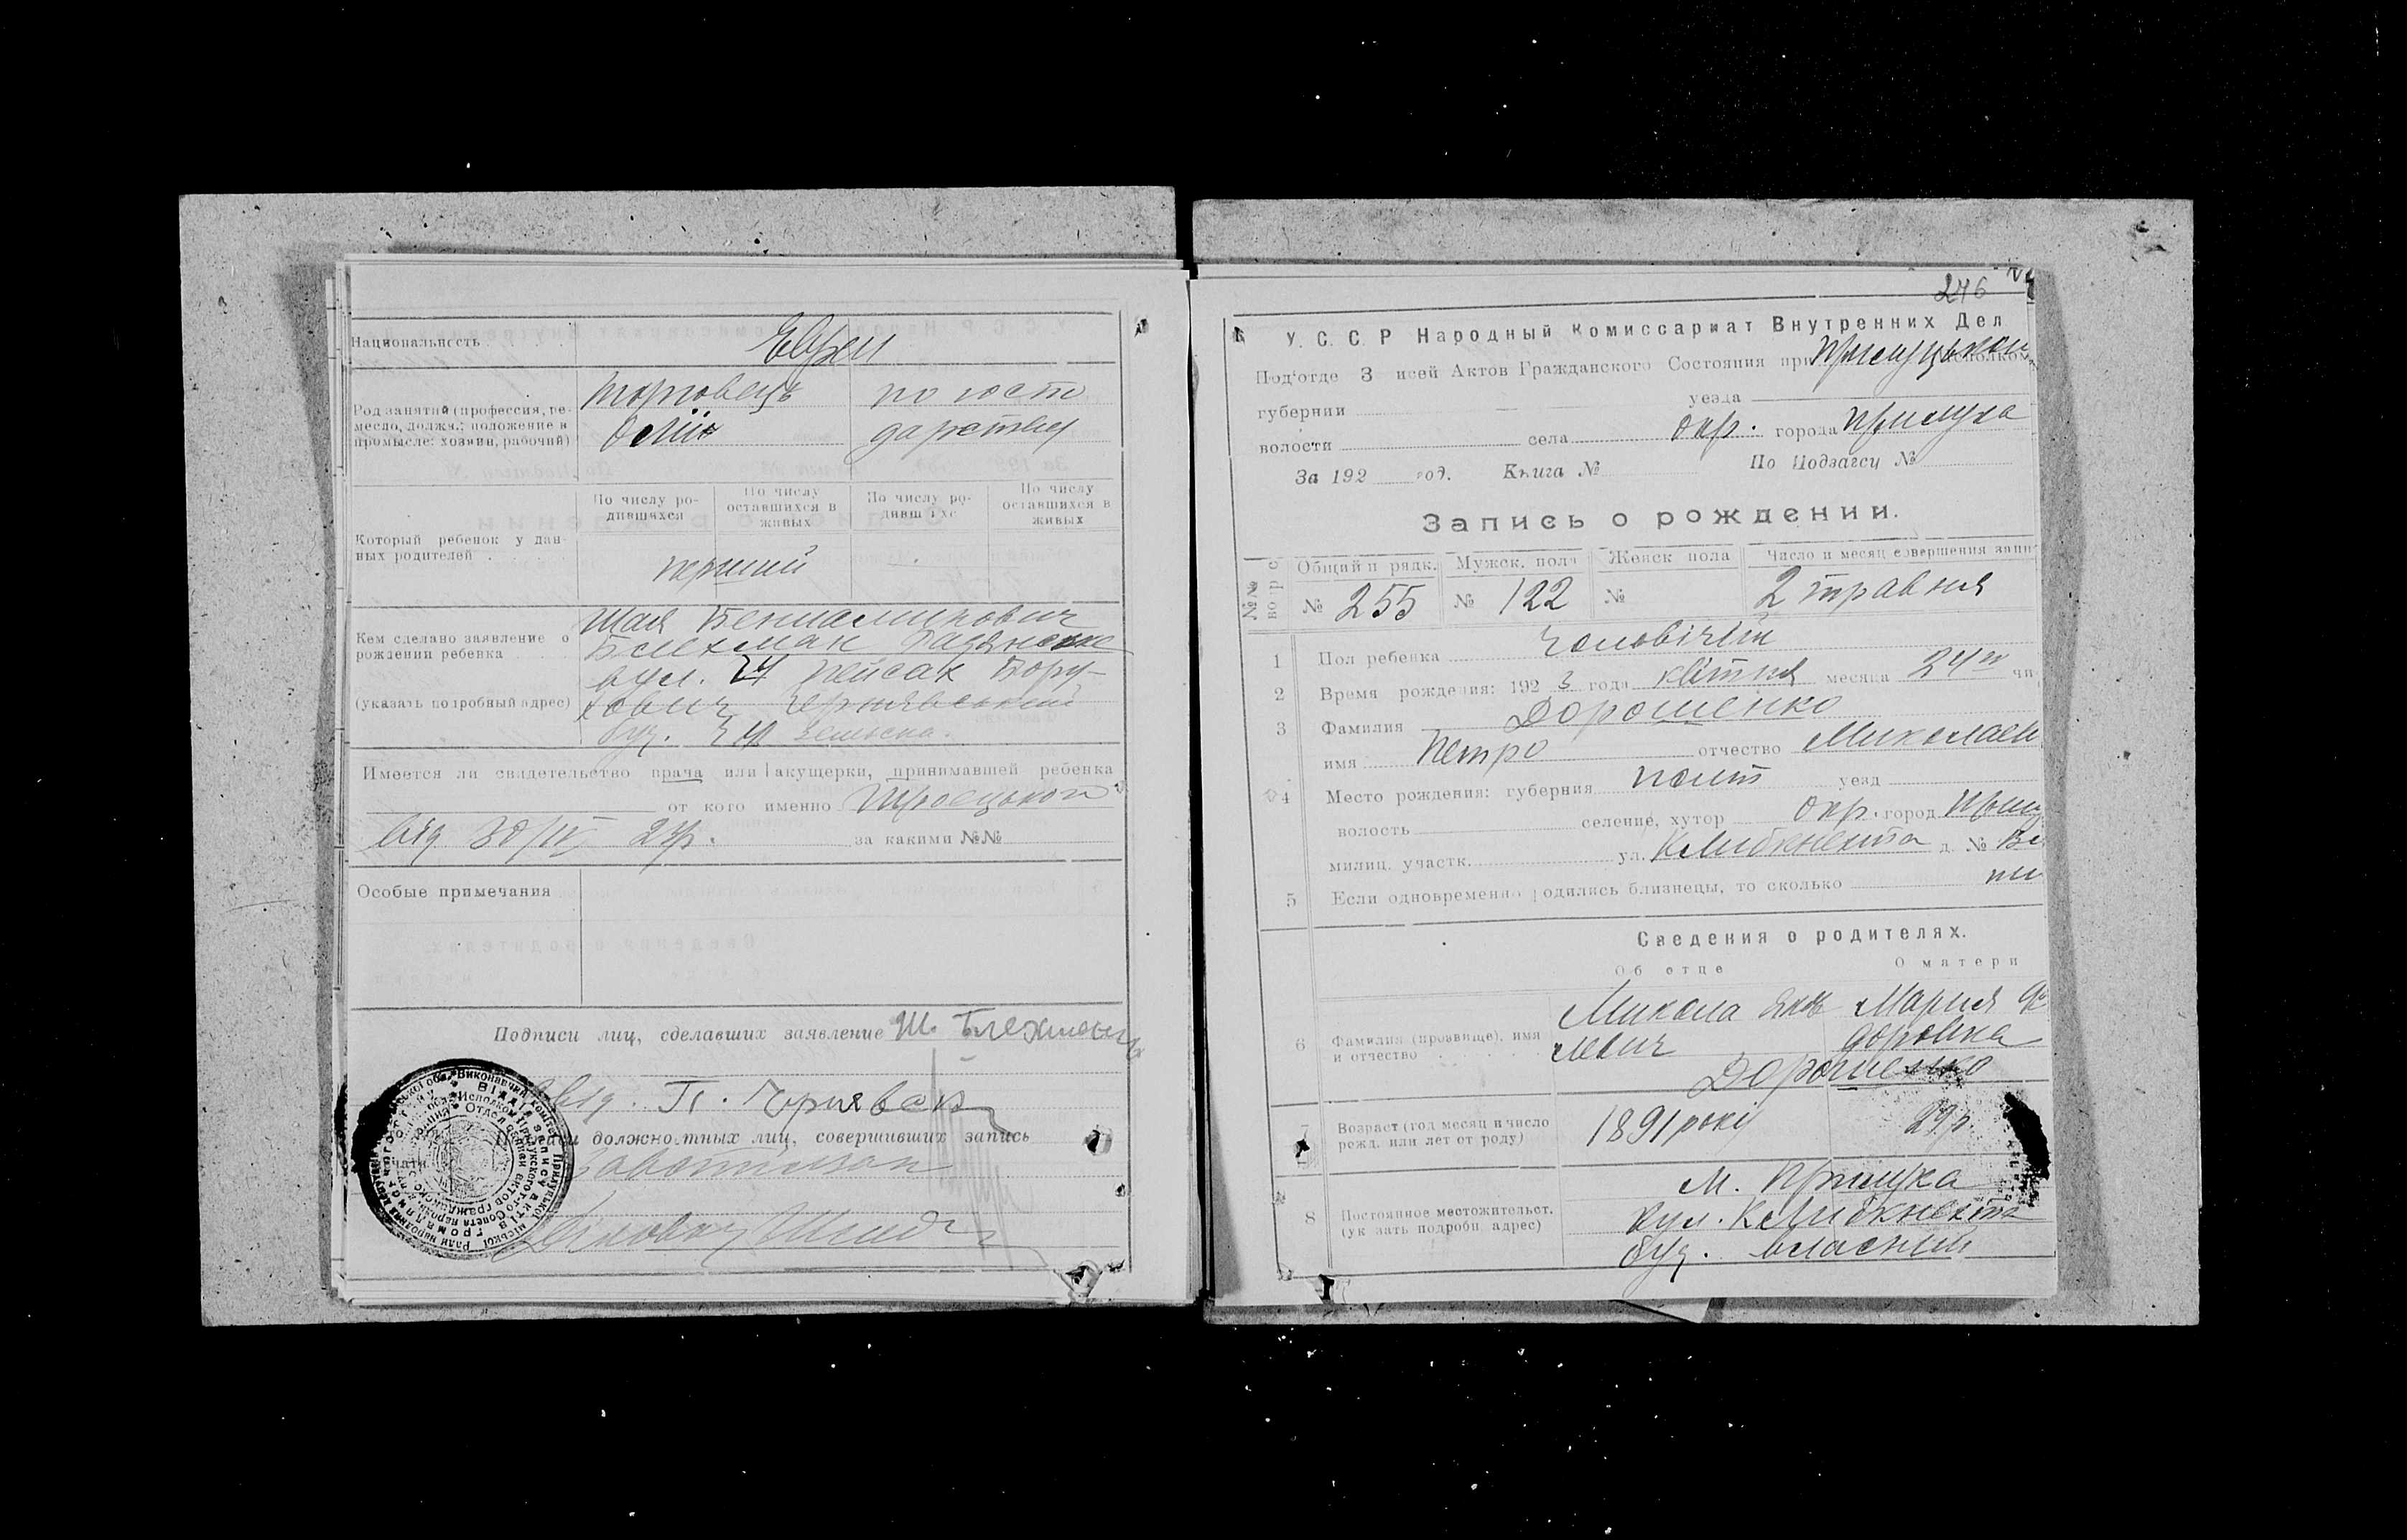 Национальность
Евреи
Род занятий (профессия, ре-
месло, должн.; положение в
промысле: хозяин, рабочий)
торговець
олій
по госпо
дарству
Который ребенок у дан-
ных родителей
По числу ро-
дившихся
По числу
оставшихся в
живых
По числу ро-
дившихс
По числу
оставшихся в
живых
перший
Кем сделано заявление о
рождении ребенка
(указать подробный адрес)
Шая Бениаминович
Блехман Радянська
вул. 24 Лейсак Бору-
хович Чернявський
буд.
Имеется ли свидетельство врача или акушерки, принимавшей ребенка
от кого именно Троецької
від 30/IV 23р. за какими №№
Особые примечания
Подписи лиц, сделавших заявление Ш. Блехман
Подписи должностных лиц, совершивших запись
Завотділом
Діловод
246
У. С. С. Р Народный Комиссариат Внутренних Дел
Под'отде З исей Актов Гражданского Состояния при Прилуцьком исполком
губернии — уезда
волости села окр. города Прилука
За 192 год. Книга № По Подзагсу №
Запись о рождении.
№№
вопрос
Общий п рядк. Мужск. пола Женск пола Число и месяц совершения запи
№ 255 № 122 № 2 травня
1 Пол ребенка чоловічій
2 Время рождения: 192 3 года квітня месяца 24го чи
3 Фамилия Дорошенко
имя Петро отчество Миколаев
4 Место рождения: губерния полт уезд
волость селение, хутор окр. город Прилу
милиц. участк. ул. К Либкнехта д. № Вл
5 Если одновременно родились близнецы, то сколько
Сведения о родителях.
Об отце О матери
6 Фамилия (прозвище), имя
и отчество
Микола Яков
левич
Мария Фе
доровна
Дорошенко
7 Возраст (год месяц и число
рожд. или лет от роду)
1891 року
29р.
8 Постоянное местожительст.
(ук зать подробн. адрес)
м. Прилука
вул. К Либкнехта
буд. власний